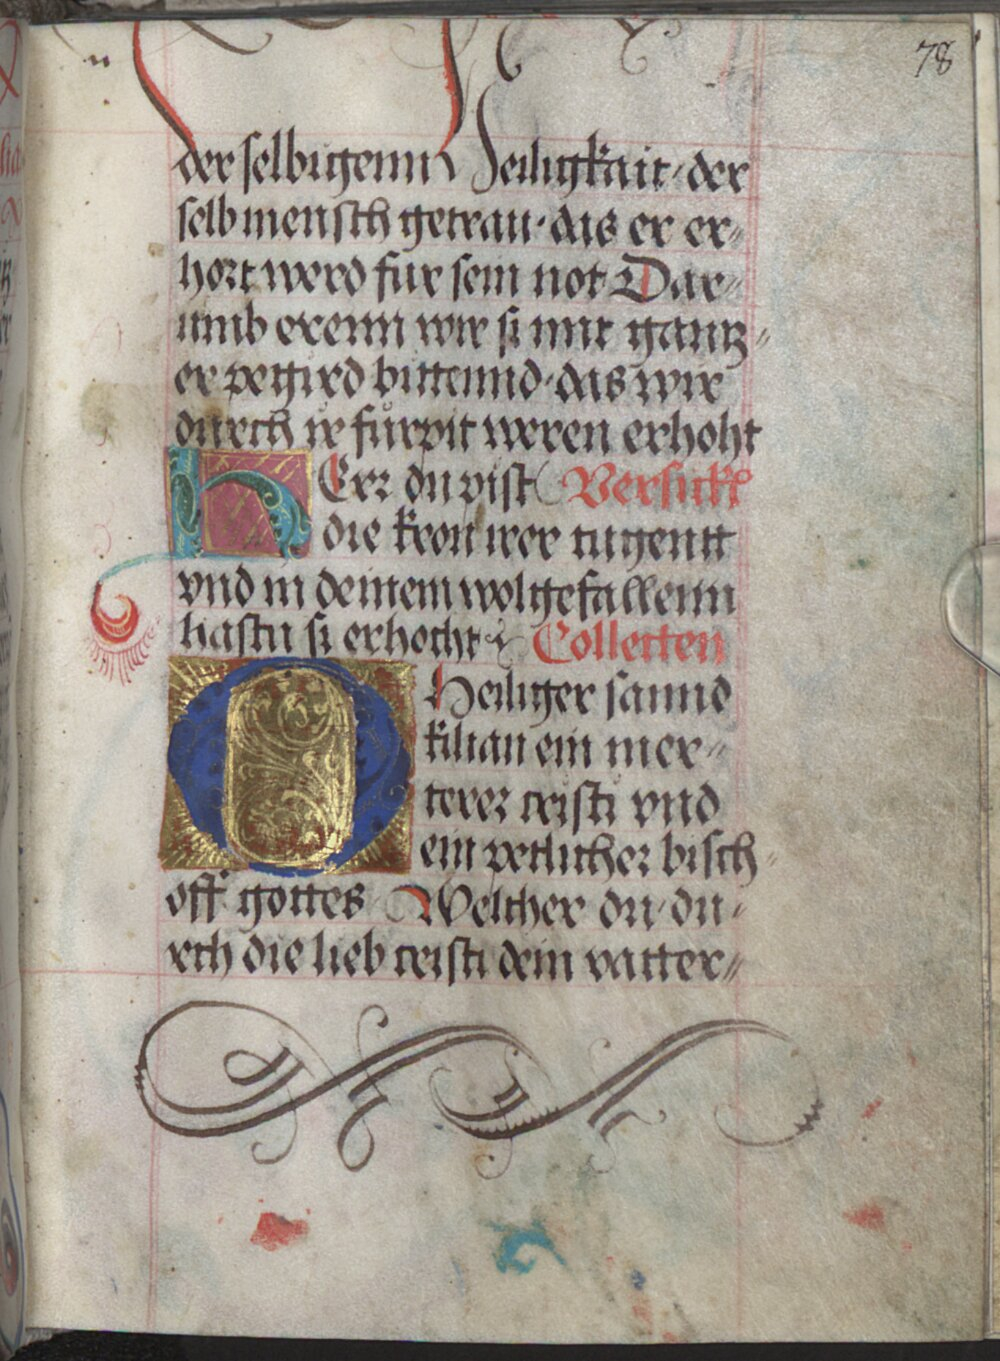 78
der selbigenn Heiligkait · der
selb mensch getrau · das er er„
hort werd fur sein not Dar„
umb erenn wir si mit gantz„
er pegird bittennd · das wir
durch ir fürpit weren erhoht
HErr du pist Versickl
die kron irer tugentt
vnd in deinem wolgefallenn
hastu si erhocht Collecten
O Heiliger sannd
kilian ein mer„
terer cristi vnd
ein vetlicher bisch„
off gottes Welcher du du„
rch die lieb cristi dein vatter„